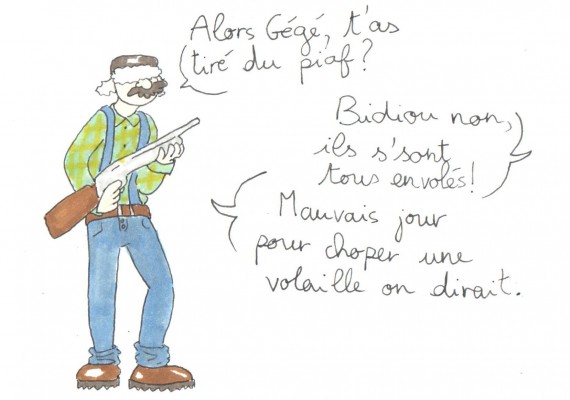 Alors Gégé, t'as
tiré du piaf?
Bidiou non,
ils s'sont
tous envolés!
Mauvais jour
pour choper une
volaille on dirait.